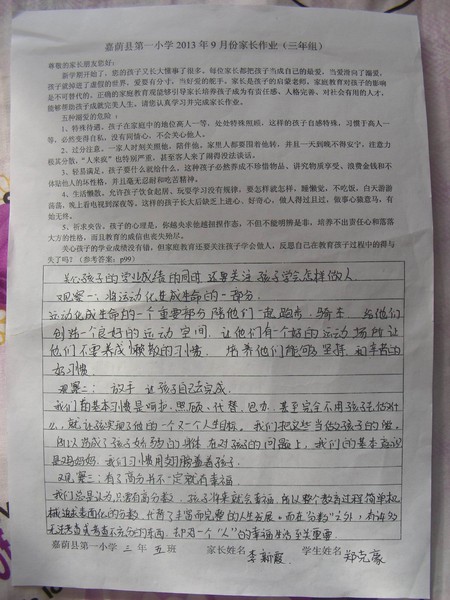 嘉荫县第一小学 2013 年 9 月份家长作业（三年组）
尊敬的家长朋友您好：
新学期开始了，您的孩子又长大懂事了很多。每位家长都把孩子当成自己的最爱，当爱滑向了溺爱，
孩子就掉进了虚假的世界。爱要有分寸，当好爱的舵手。家长是孩子的启蒙老师，家庭教育对孩子的影响
是不可替代的，正确的家庭教育观能够引导家长培养孩子成为有责任感、人格完善、对社会有用的人才，
能够帮助孩子成就完美人生。请您认真学习并完成家长作业。
五种溺爱的危险：
1、特殊待遇，孩子在家庭中的地位高人一等，处处特殊照顾，这样的孩子自感特殊，习惯于高人一
等，必然变得自私，没有同情心、不会关心他人。
2、过分注意，一家人时刻关照他、陪伴他。家里人都要围着他转，并且一天到晚不得安宁，注意力
极其分散，“人来疯”也特别严重，甚至客人来了闹得没法谈话。
3、轻易满足，孩子要什么就给什么。这种孩子必然养成不珍惜物品、讲究物质享受、浪费金钱和不
体贴他人的坏性格，并且毫无忍耐和吃苦精神。
4、生活懒散，允许孩子饮食起居、玩耍学习没有规律，要怎样就怎样，睡懒觉，不吃饭，白天游游
荡荡，晚上看电视到深夜等。这样的孩子长大后缺乏上进心、好奇心，做人得过且过，做事心猿意马，有
始无终。
5、祈求央告，孩子的心理是，你越央求他越扭捏作态，不但不能明辨是非，培养不出责任心和落落
大方的性格，而且教育的威信也丧失殆尽。
关心孩子的学业成绩没有错，但家庭教育还要关注孩子学会做人，反思自己在教育孩子过程中的得与
失了吗？（参考答案：p99）
关心孩子的学业成绩的同时 还要关注 孩子学会怎样做人
观察一：将运动化生成生命的一部分
运动化成生命的一个重要部分 陪他们一起跑步、骑车 给他们
创造一个良好的运动空间 让他们有一个好的运动场所让
他们不要养成懒散的习惯 培养他们能够坚持 和
好习惯
观察二： 放手 让孩子自己去完成
我们的基本习惯是 代替、包办、甚至完全不用孩子
就让孩子实现了他的一个又一个人生目标。我们把这些当做孩子的
所以造成了孩子 在对孩子的问题上，我们的基本
是 我们习惯用翅膀盖着孩子
观察三：有了高分并不一定就有幸福
我们总是认为只要有高分数 孩子将来就会幸福 所以整个教育过程简单机
械追求表面化的分数，代替了丰富而完整的人生发展。而在“分数”之外，有许多
却对一个“人”的幸福生活至关重要
嘉荫县第一小学 三 年 五 班 家长姓名 李新霞 学生姓名 郑克豪